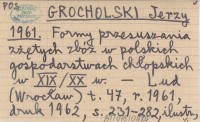 POS GROCHOLSKI Jerzy
1961. Formy przesuszania
zżętych zbóż w polskich
gospodarstwach chłopskich
w XIX/XX w. — Lud
(Wrocław) t. 47, r. 1961,
druk 1962, s. 231-282, ilustr.